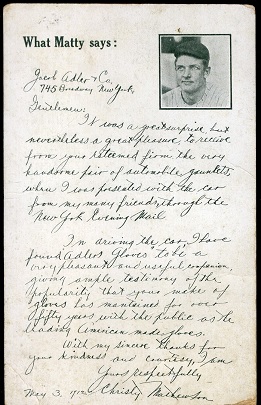 What Matty says:
Jacob Adler & Co,
745 Broadway New York,
Gentlemen:
It was a great surprise but
nevertheless a great pleasure to receive
from your esteemed firm the very
handsome pair of automobile gauntlets,
when I was presented with the car
from my many friends through the
New York Evening Mail
In driving the car, I have
found Adlers Gloves to be a
very pleasant and useful companion,
giving ample testimony of the
popularity that your make of
gloves has maintained for over
fifty years with the public as the
leading American made gloves.
With my sincere thanks for
your kindness and courtesy, I am
Yours respectfully
May 3, 1912 Christy Mathewson